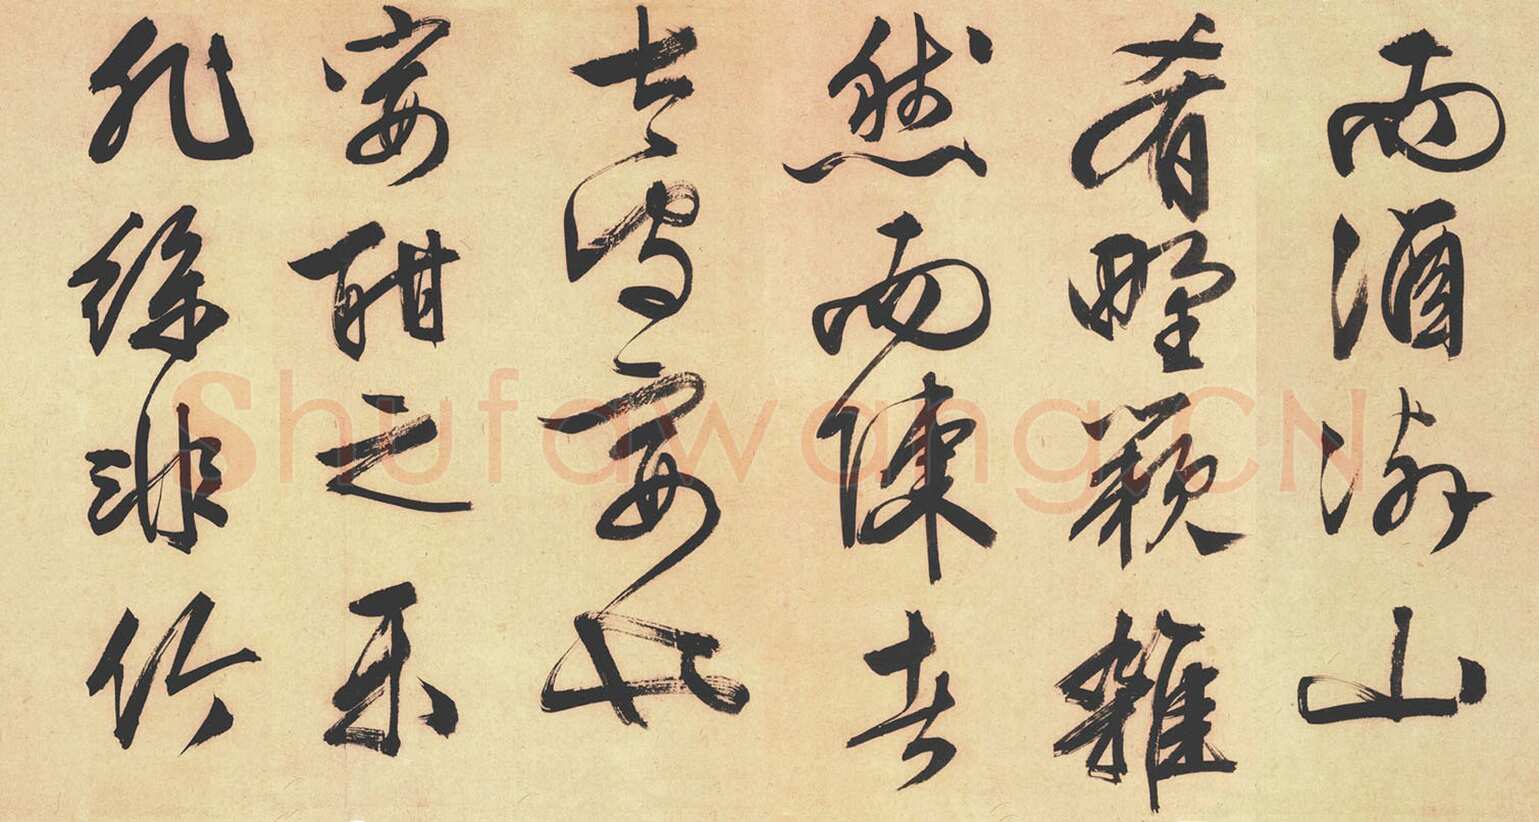 而酒洌山
肴野蔌雜
然而陳者
太守宴也
宴酣之乐
非絲非竹
Shufawang.CN